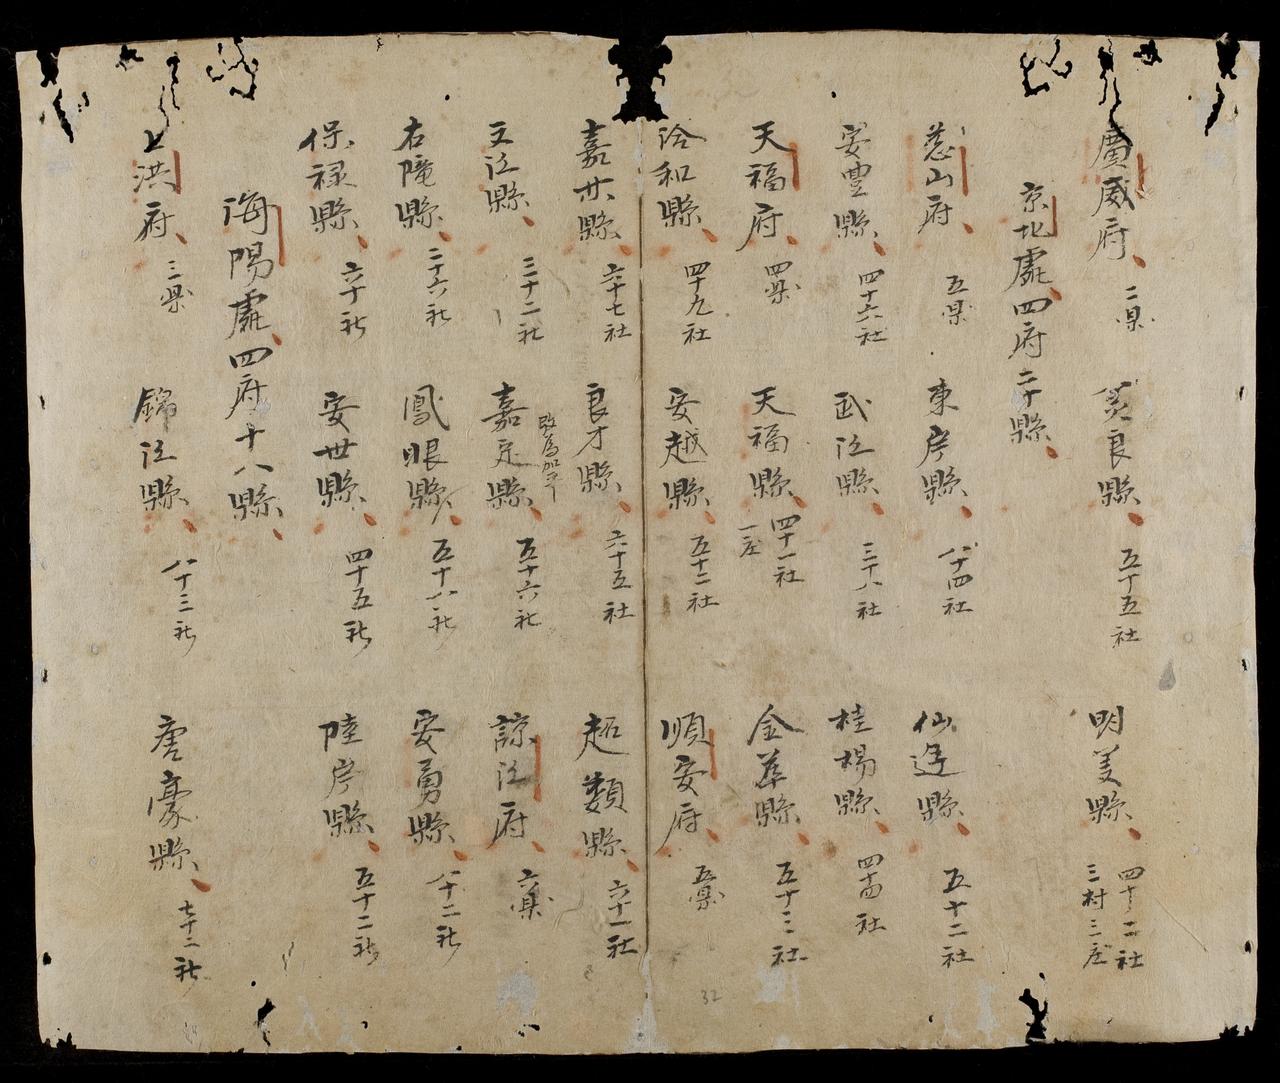 廣威府 二県 美良縣 五十五社 明美縣 四十二社 三村三庄
京北處四府二十縣
慈山府 五県 東岸縣 八十四社 仙逰縣 五十二社
安豊縣 四十六社 武江縣 三十八社 桂楊縣 四十四社
天福府 四県 天福縣 四十一社 一庄 金華縣 五十三社
洽和縣 四十九社 安越縣 五十二社 順安府 五県
嘉林縣 六十七社 良才縣 六十五社 超類縣 六十一社
文江縣 三十二社 嘉定縣 改為加平 五十六社 諒江府 六県
右隴縣 二十六社 鳳眼縣 五十八社 安勇縣 八十二社
保禄縣 六十社 安世縣 四十五社 陸岸縣 五十二社
海陽處四府十八縣
上洪府 三県 錦江縣 八十三社 唐豪縣 七十二社
32